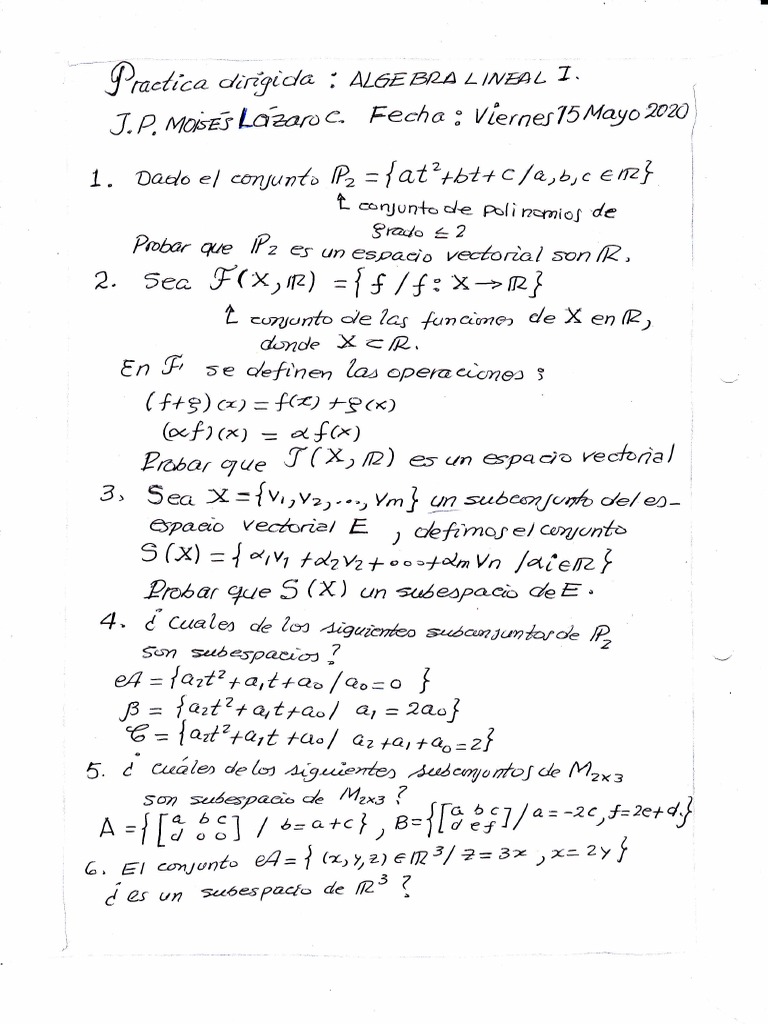 Practica dirigida : ALGEBRA LINEAL I.
J.P. MOISÉS Lázaro C. Fecha : Viernes 15 Mayo 2020
1. Dado el conjunto ℙ₂ = {at²+bt+c / a,b,c ∈ ℝ}
↑ conjunto de polinomios de
grado ≤ 2
Probar que ℙ₂ es un espacio vectorial son ℝ.
2. Sea ℱ(X, ℝ) = {f / f: X → ℝ}
↑ conjunto de las funciones de X en ℝ,
donde X ⊂ ℝ.
En ℱ se definen las operaciones :
(f+g)(x) = f(x) + g(x)
(αf)(x) = α f(x)
Probar que ℱ(X, ℝ) es un espacio vectorial
3. Sea X = {v₁, v₂, ..., vm} un subconjunto del es-
espacio vectorial E , defimos el conjunto
S(X) = { α₁v₁ + α₂v₂ + ... + αm vn / αi ∈ ℝ}
Probar que S(X) un subespacio de E.
4. ¿ Cuales de los siguientes subconjuntos de ℙ₂
son subespacios ?
𝒜 = {a₂t² + a₁t + a₀ / a₀ = 0 }
β = {a₂t² + a₁t + a₀ / a₁ = 2a₀}
𝒞 = {a₂t² + a₁t + a₀ / a₂ + a₁ + a₀ = 2}
5. ¿ cuáles de los siguientes subconjuntos de M₂ₓ₃
son subespacio de M₂ₓ₃ ?
A = {[a b c / d 0 0] / b = a + c} , B = {[a b c / d e f] / a = -2c, f = 2e + d.}
6. El conjunto 𝒜 = { (x, y, z) ∈ ℝ³ / z = 3x , x = 2y }
¿ es un subespacio de ℝ³ ?